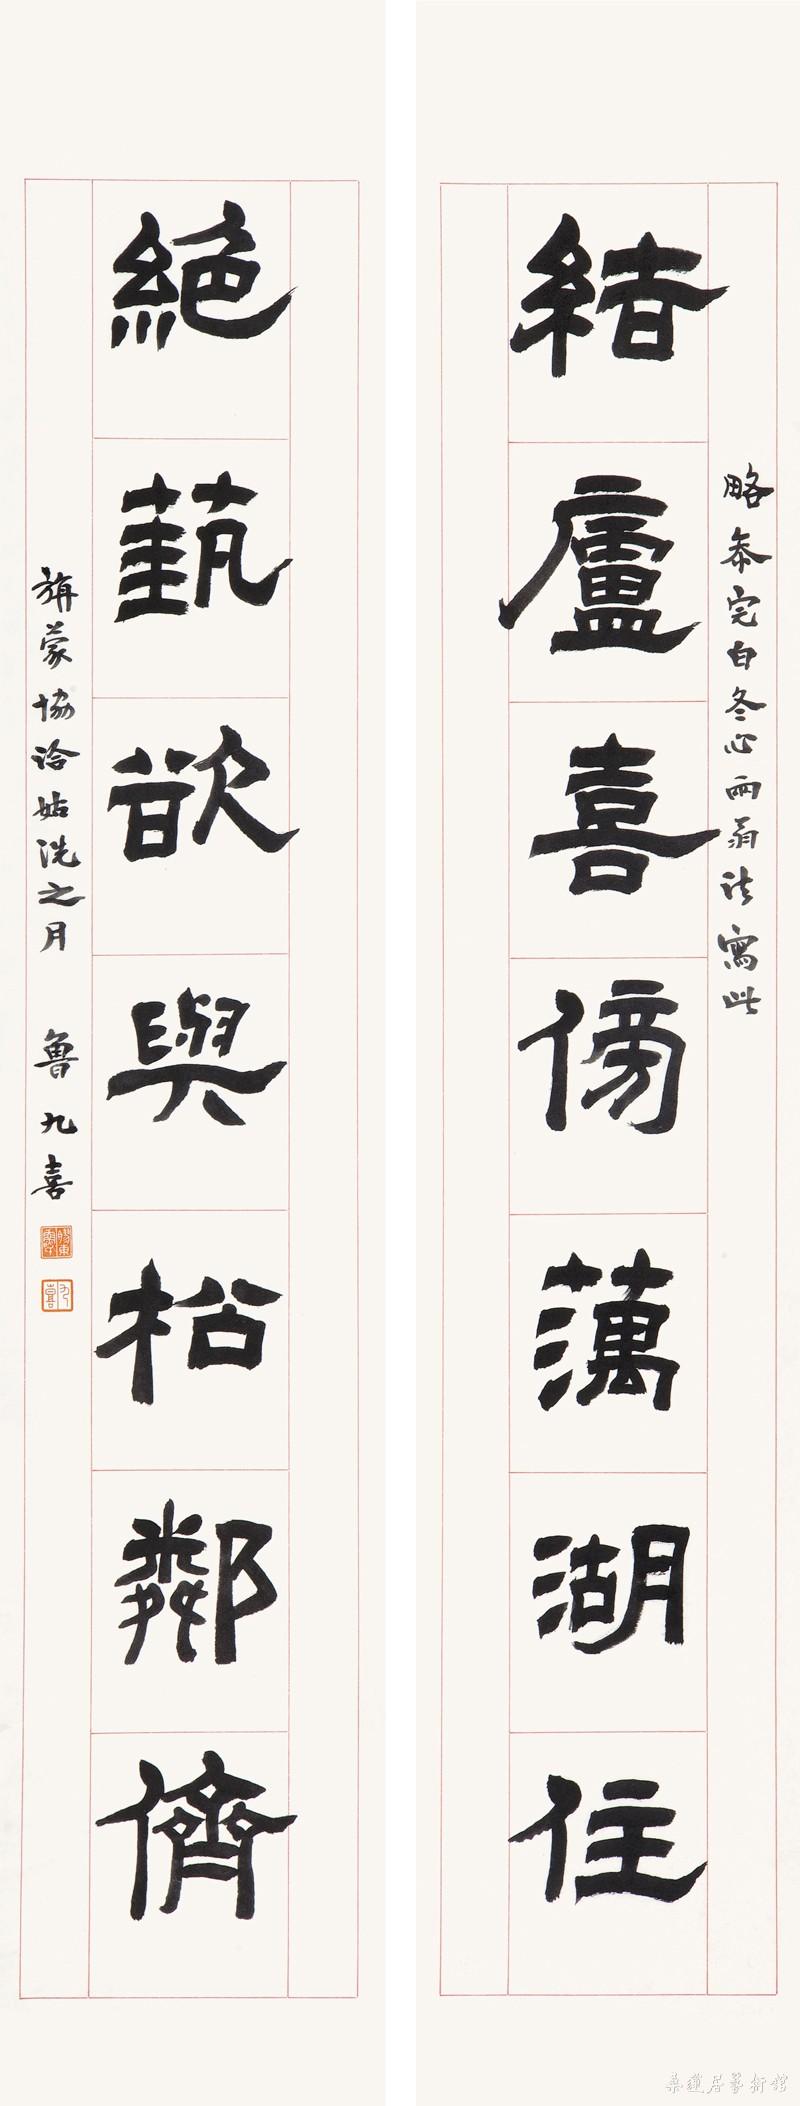 結廬喜傍蕅湖住
略叅完白冬心兩翁法寫此
絶蓺欲與松鄰儕
旃蒙協洽姑洗之月 魯九喜
九喜
桑蓮居藝術館